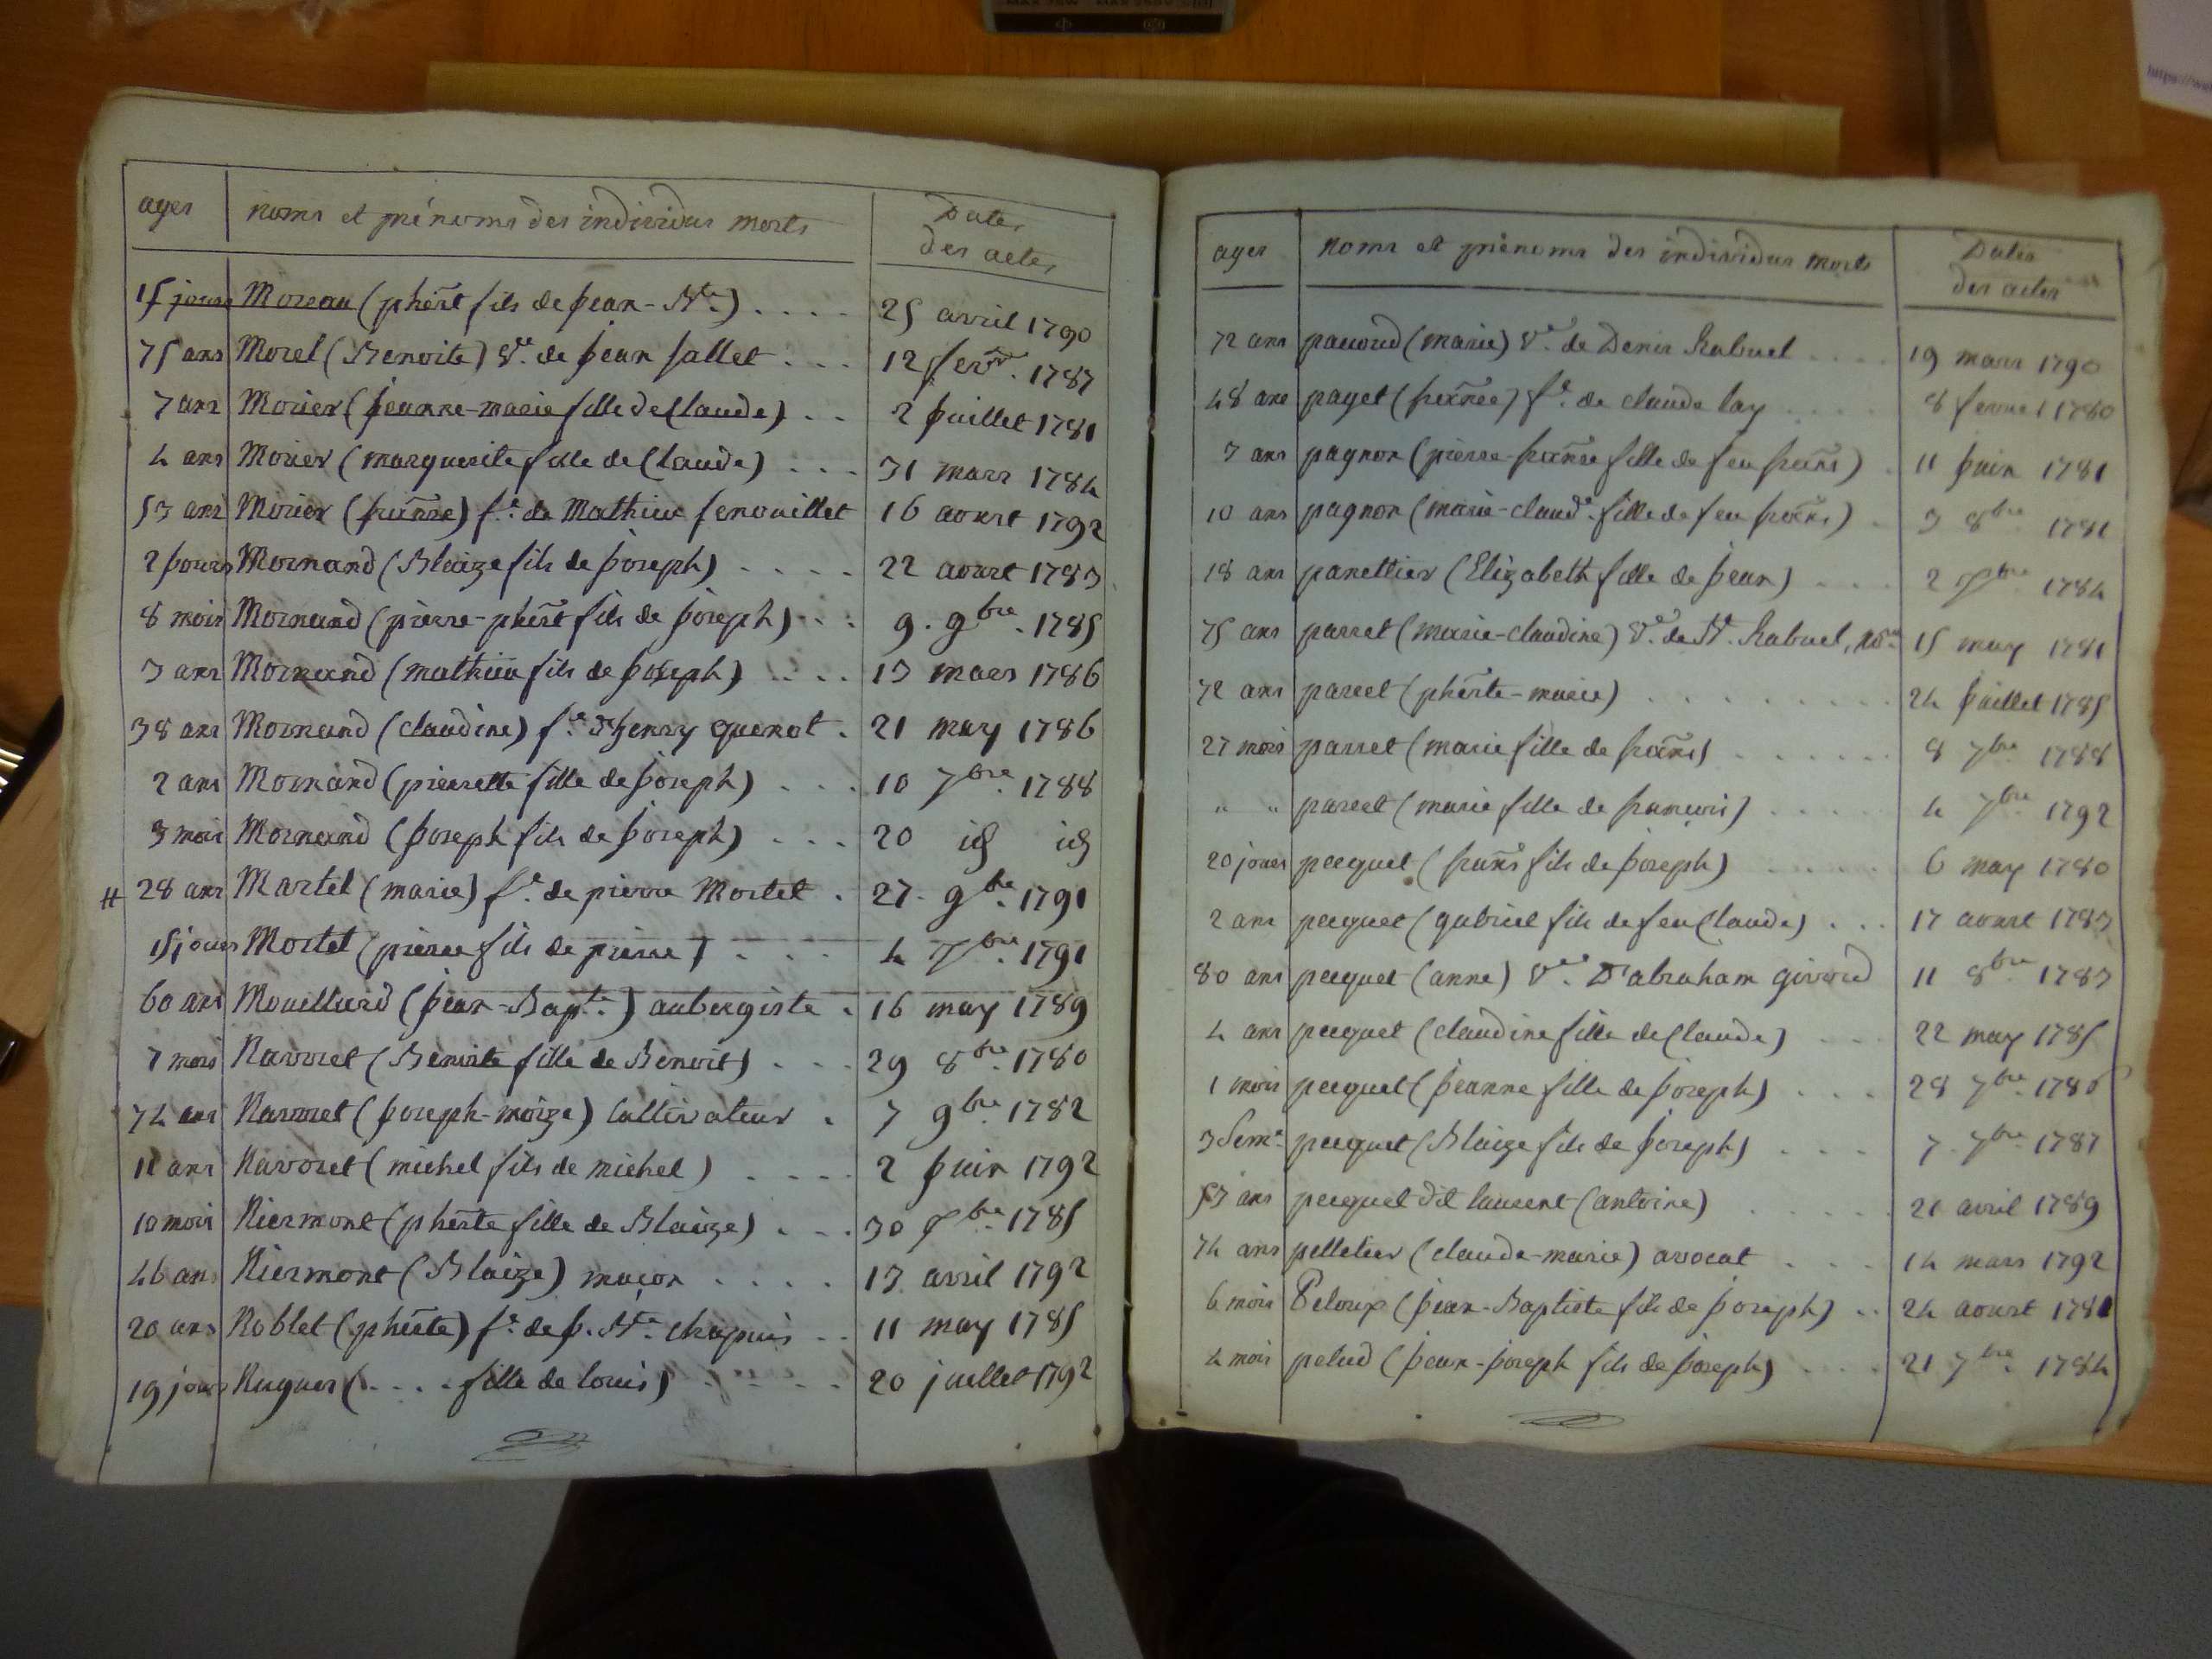 ages noms et prénoms des individus morts Dates
des actes
15 jours Moreau (phert fils de jean-Bte) .... 25 avril 1790
75 ans Morel (Benoite) Ve. de jean Sallet ... 12 fevr. 1787
7 ans Morier (jeanne-marie fille de Claude) .. 2 juillet 1781
4 ans Morier (marguerite fille de Claude) ... 31 mars 1784
53 ans Morier (franse) fe. de Mathieu fenouillet 16 aoust 1792
2 jours Mornand (Blaize fils de joseph) .... 22 aoust 1783
8 mois Mornand (pierre-phert fils de joseph) ... 9. 9bre. 1785
3 ans Mornand (mathieu fils de joseph) .... 13 mars 1786
38 ans Mornand (claudine) fe. d'henry quenot . 21 may 1786
2 ans Mornand (pierrette fille de joseph) ... 10 7bre. 1788
3 mois Mornand (joseph fils de joseph) ... 20 id id
# 28 ans Martel (marie) fe. de pierre Mortet . 27. 9bre. 1791
15 jours Mortet (pierre fils de pierre) ... 4 Xbre. 1791
60 ans Mouillard (jean-Bapte.) aubergiste . 16 may 1789
7 mois Navoret (Benoite fille de Benoit) ... 29 8bre. 1780
74 ans Navoret (joseph-moize) Cultivateur . 7 9bre. 1782
11 ans Navoret (michel fils de michel) .... 2 juin 1792
10 mois Niermont (pherte fille de Blaize) ... 30 Xbre. 1785
46 ans Niermont (Blaize) maçon .... 13 avril 1792
20 ans Noblet (pherte) fe. de j. Bte. chapuis .. 11 may 1785
19 jours Nugues (.... fille de louis) ..... 20 juillet 1792
ages noms et prénoms des individus morts Dates
des actes
72 ans (marie) Ve. de Denis Rabuel .... 19 mars 1790
48 ans paget fe. de claude lay .... 8 fevrier 1780
7 ans pagnon (pierre-franse fille de feu frans) . 11 juin 1781
10 ans pagnon (marie-claude. fille de feu frans) . 3 8bre 1781
18 ans panettier (Elizabeth fille de jean) .... 2 Xbre. 1784
75 ans parret (marie-claudine) Ve. de Bt. Rabuel, 15 may 1781
72 ans parret (pherte-marie) ......... 24 juillet 1785
27 mois parret (marie fille de frans) ...... 8 7bre. 1788
" " parret (marie fille de francois) ..... 4 7bre. 1792
20 jours pecquet (frans fils de joseph) ..... 6 may 1780
2 ans pecquet (gabriel fils de feu Claude) ... 17 aoust 1783
80 ans pecquet (anne) Ve. D'abraham girod 11 8bre. 1783
4 ans pecquet (claudine fille de Claude) ... 22 may 1785
1 mois pecquet (jeanne fille de joseph) ... 28 7bre. 1786
3 Seme. pecquet (Blaize fils de joseph) ... 7. 7bre. 1787
53 ans pecquet dit laurent (antoine) ..... 21 avril 1789
74 ans pelletier (claude-marie) avocat .... 14 mars 1792
6 mois Peloux (jean-Baptiste fils de joseph) .. 24 aoust 1781
4 mois pelud (jean-joseph fils de joseph) .... 21 7bre. 1784